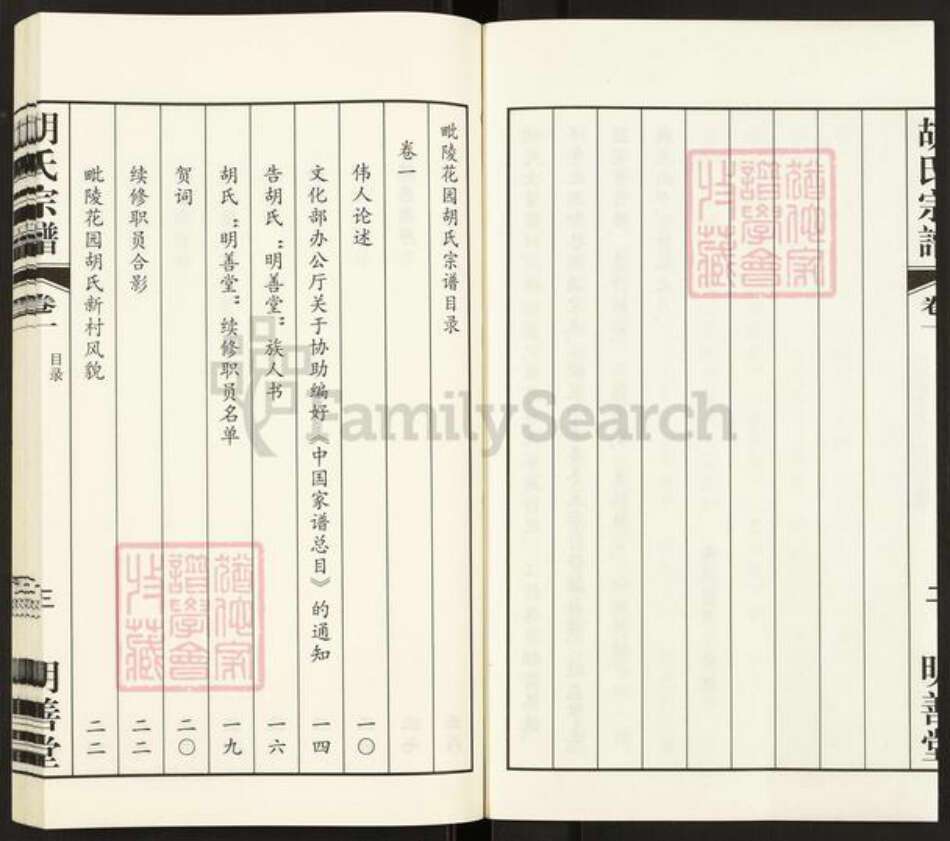 胡氏宗谱
卷一
二
明善堂
毗陵花园胡氏宗谱目录
卷一
伟人论述 一〇
文化部办公厅关于协助编好《中国家谱总目》的通知 一四
告胡氏“明善堂”族人书 一六
胡氏“明善堂”续修职员名单 一九
贺词 二〇
续修职员合影 二二
毗陵花园胡氏新村风貌 二二
胡氏宗谱
卷一
目录
三
明善堂
FamilySearch